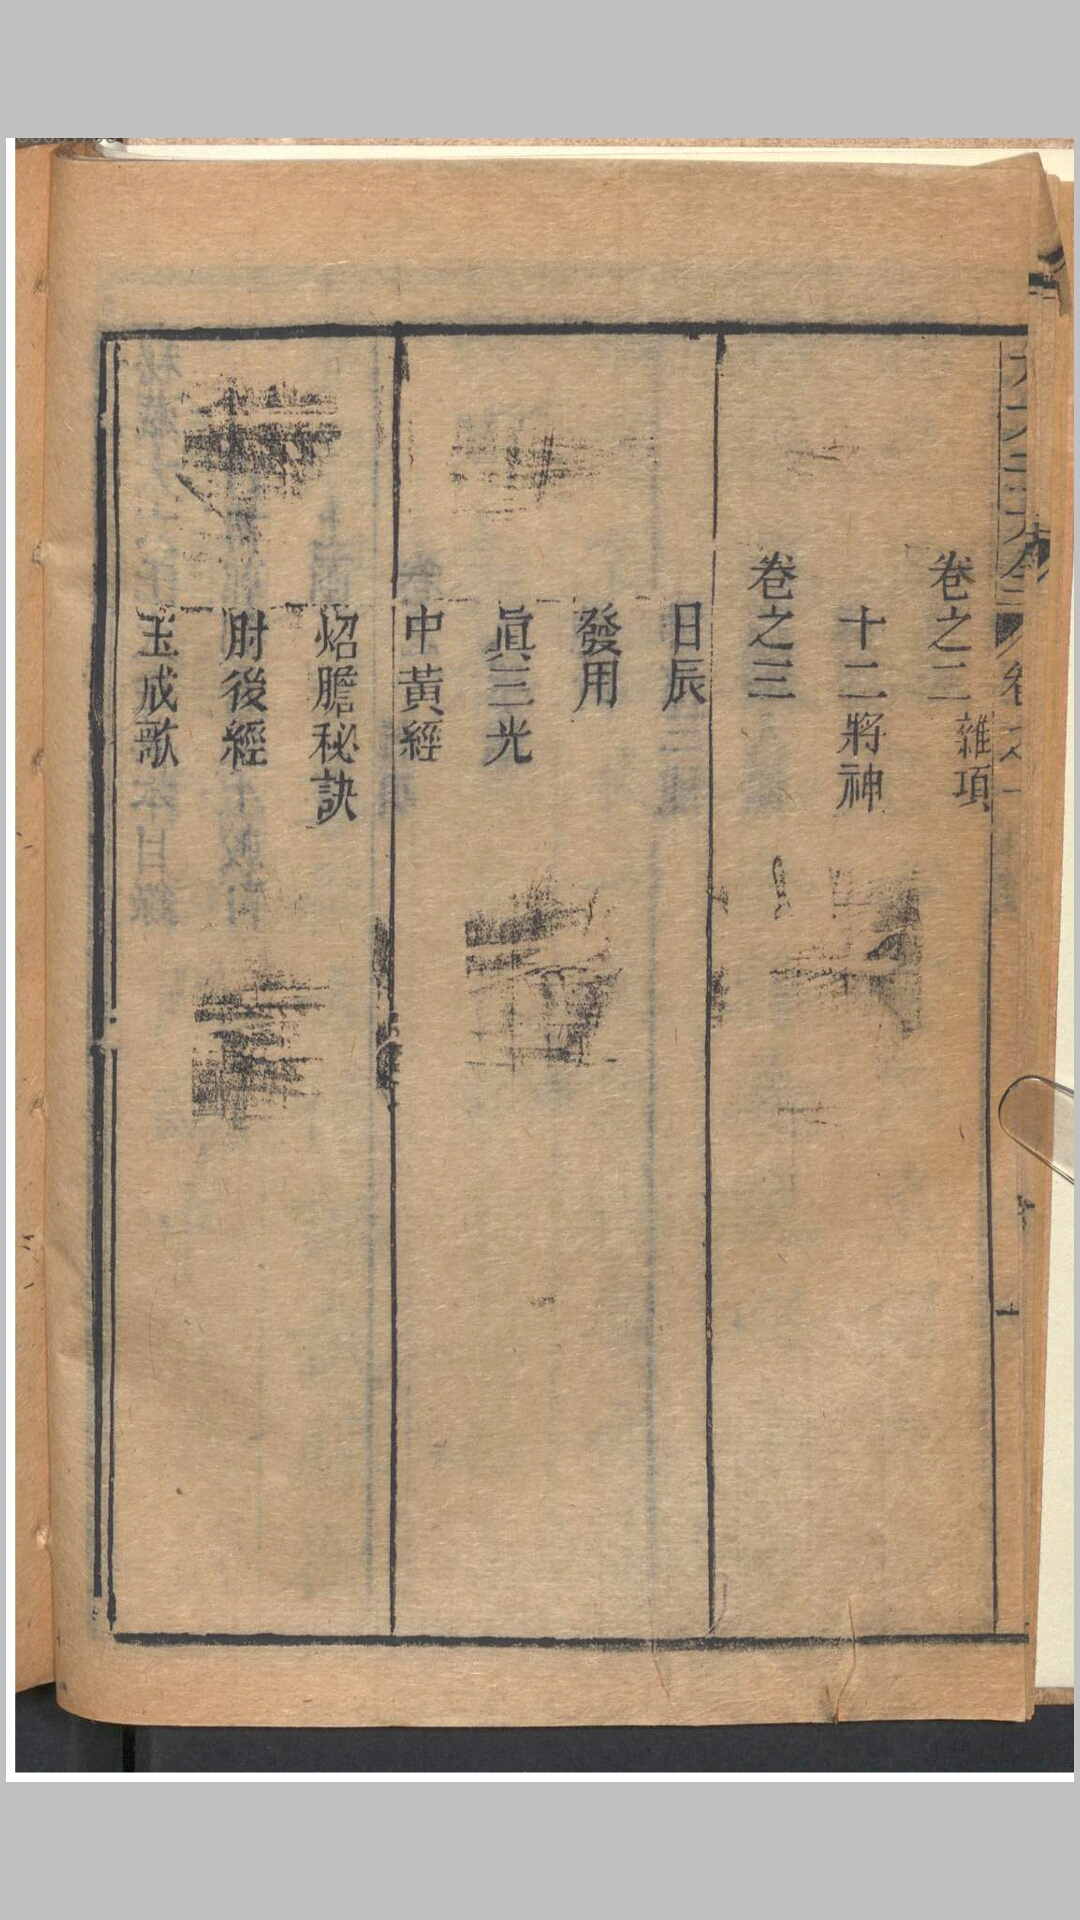 卷之二
雜項
十二將神
卷之三
日辰
發用
眞三光
中黃經
炤膽秘訣
肘後經
玉成歌